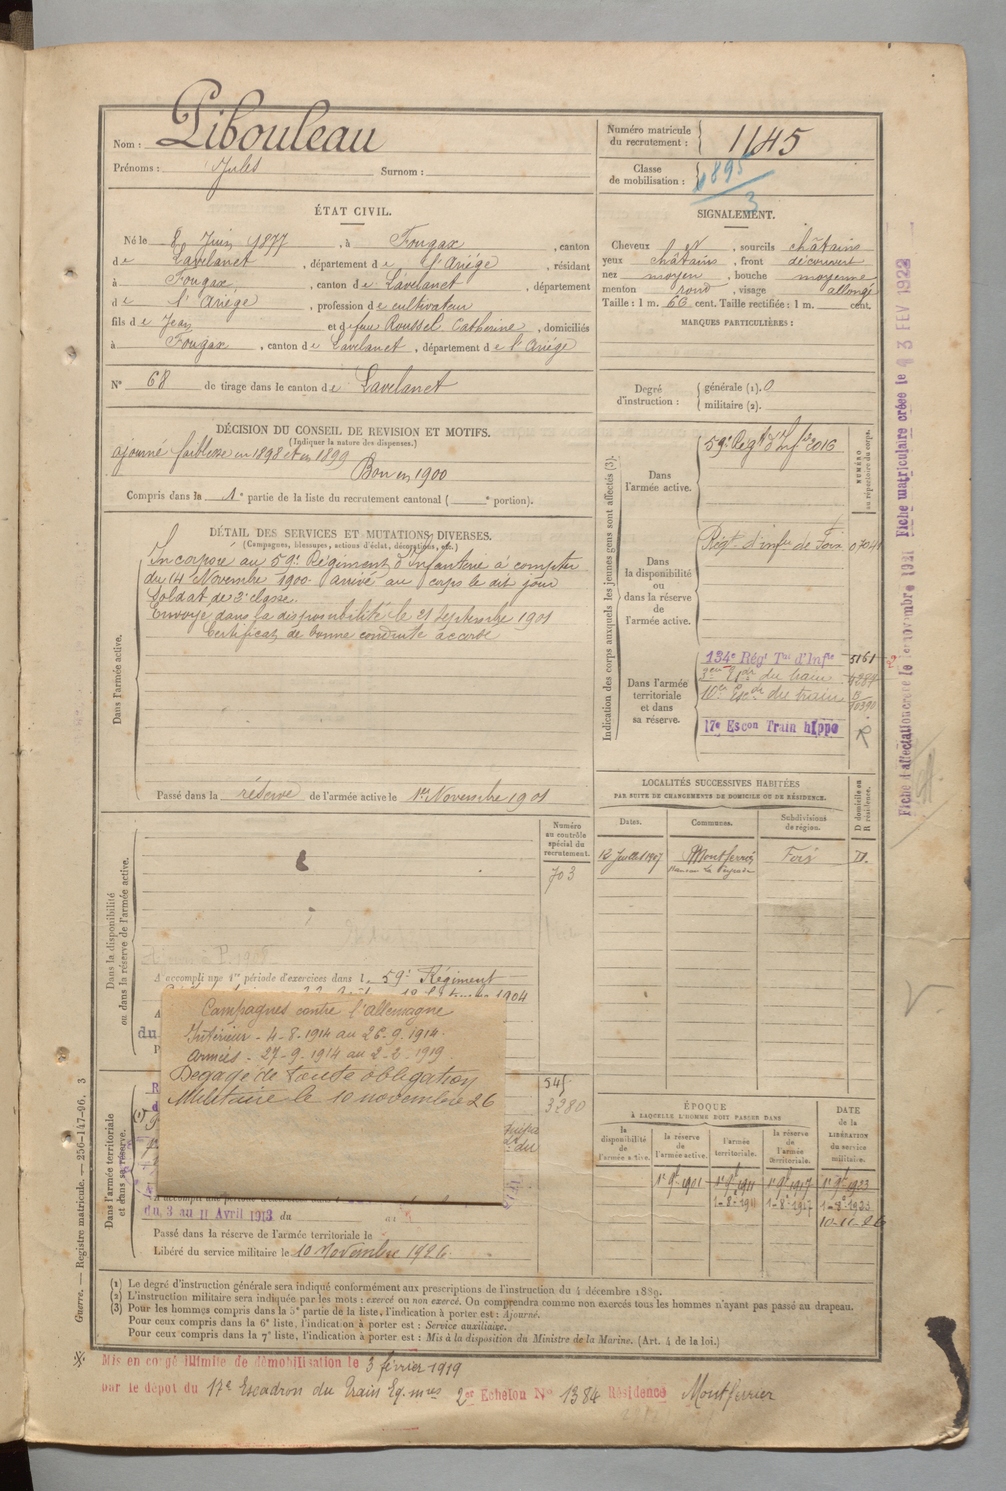 Nom : Pibouleau
Prénoms : Jules Surnom :
Numéro matricule
du recrutement : 1145
Classe
de mobilisation : 1895
3
ÉTAT CIVIL.
Né le 8 Juin 1877, à Fougax, canton
de Lavelanet, département de l'Ariége, résidant
à Fougax, canton de Lavelanet, département
de l'Ariége, profession de cultivateur
fils de Jean et de feue Roussel Catherine, domiciliés
à Fougax, canton de Lavelanet, département de l'Ariége
N° 68 de tirage dans le canton de Lavelanet
SIGNALEMENT.
Cheveux et, sourcils châtains
yeux châtains, front découvert
nez moyen, bouche moyenne
menton rond, visage allongé
Taille : 1 m. 66 cent. Taille rectifiée : 1 m. cent.
MARQUES PARTICULIÈRES :
Degré
d'instruction :
générale (1). 0
militaire (2).
DÉCISION DU CONSEIL DE REVISION ET MOTIFS.
(Indiquer la nature des dispenses.)
ajourné faiblesse en 1898 et en 1899
Bon en 1900
Compris dans la 1e partie de la liste du recrutement cantonal ( e portion).
DÉTAIL DES SERVICES ET MUTATIONS DIVERSES.
(Campagnes, blessures, actions d'éclat, décorations, etc.)
Dans l'armée active.
Incorporé au 59e Régiment d'Infanterie à compter
du 14 Novembre 1900. arrivé au corps le dit jour
Soldat de 2e classe.
Envoyé dans la disponibilité le 21 Septembre 1901
Certificat de bonne conduite accordé
Passé dans la réserve de l'armée active le 1er Novembre 1901
Indication des corps auxquels les jeunes gens sont affectés (3).
NUMÉRO
au répertoire du corps.
Dans
l'armée active.
59e Regt d'Infie 2016
Dans
la disponibilité
ou
dans la réserve
de
l'armée active.
Régt d'infie de Foix 07041
Dans l'armée
territoriale
et dans
sa réserve.
134e Régt Tal d'Infie 5161
du train
du train
17e Escon Train hippo R
LOCALITÉS SUCCESSIVES HABITÉES
PAR SUITE DE CHANGEMENTS DE DOMICILE OU DE RÉSIDENCE.
D domicile ou
R résidence.
Dates. Communes. Subdivisions
de région.
12 Juillet 1907 Montferrier Foix D.
Dans la disponibilité
ou dans la réserve de l'armée active.
Numéro
au contrôle
spécial du
recrutement.
703
A accompli une 1re période d'exercices dans le 59e Régiment
1904
Campagnes contre l'allemagne
Intérieur - 4-8-1914 au 26-9-1914.
Armées - 27-9-1914 au 2-2-1919.
Dégagé de toute obligation
Militaire le 10 novembre 26
Dans l'armée territoriale
et dans sa réserve.
545
3280
du 3 au 11 Avril 1913 du au
Passé dans la réserve de l'armée territoriale le
Libéré du service militaire le 10 Novembre 1926.
ÉPOQUE
À LAQUELLE L'HOMME DOIT PASSER DANS
la
disponibilité
de
l'armée active.
la réserve
de
l'armée active.
l'armée
territoriale.
la réserve
de
l'armée
territoriale.
DATE
de la
LIBÉRATION
du service
militaire.
1er 9bre 1901 1er 9bre 1911 1er 9bre 1917 1er 9bre 1923
1-8e 1911 1-8e 1917 1-8e 1923
10-11-26
(1) Le degré d'instruction générale sera indiqué conformément aux prescriptions de l'instruction du 4 décembre 1889.
(2) L'instruction militaire sera indiquée par les mots : exercé ou non exercé. On comprendra comme non exercés tous les hommes n'ayant pas passé au drapeau.
(3) Pour les hommes compris dans la 5e partie de la liste, l'indication à porter est : Ajourné.
Pour ceux compris dans la 6e liste, l'indication à porter est : Service auxiliaire.
Pour ceux compris dans la 7e liste, l'indication à porter est : Mis à la disposition du Ministre de la Marine. (Art. 4 de la loi.)
Mis en congé illimité de démobilisation le 3 février 1919
par le dépôt du 17e Escadron du Train Eq. mres 2me Echelon No 1384 Résidence Montferrier
Guerre. — Registre matricule. — 256-147-96. 3
Fiche d'affectation créée le 1 novembre 1921 Fiche matriculaire créée le 3 FEV 1922